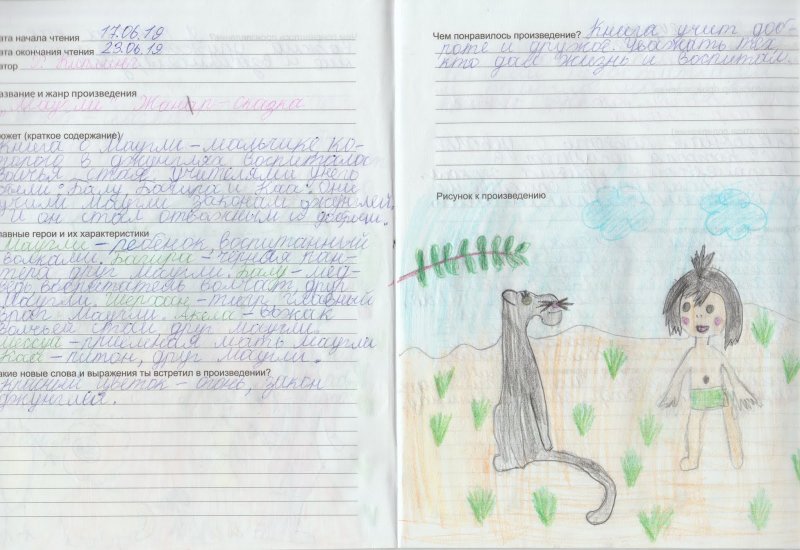 ата начала чтения 17.06.19
ата окончания чтения 23.06.19
втор Р. Киплинг
азвание и жанр произведения
"Маугли Жанр-сказка
южет (краткое содержание)
Книга о Маугли-мальчике ко-
торого в джунглях воспиталась
волчья стая, учителями у него
были: Балу, Багира и Каа. Они
учили Маугли законам джунглей.
И он стал отважным и добрым.
лавные герои и их характеристики
Маугли-ребёнок воспитанный
волками. Багира-чёрная пан-
тера друг Маугли. Балу-мед-
ведь воспитатель волчат, друг
Маугли. Шерхан-тигр главный
враг Маугли. Акела-вожак
волчьей стаи, друг Маугли.
-приёмная мать Маугли
Каа-питон, друг Маугли.
акие новые слова и выражения ты встретил в произведении?
красный цветок-огонь, закон
джунглей.
Чем понравилось произведение? Книга учит доб-
роте и дружбе. Уважать тех
кто дал жизнь и воспитал.
Рисунок к произведению